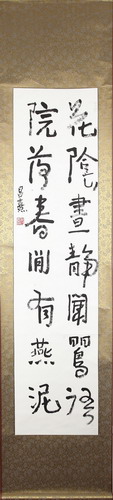 花陰晝靜聞鶯語
院落春閒有燕泥